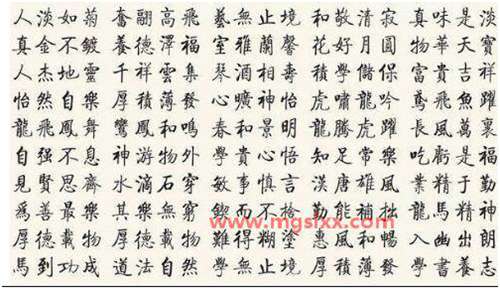 人淡如菊 奮翮高飛 藝無止境 和敬清寂 真味是淡
真金不鍍 養德澤福 室雅蘭馨 花好月圓 物華天寶
人杰地靈 千祥雲集 琴 相壽 學儲 富貴吉祥
怡然自樂 厚積薄發 心曠神怡 虎嘯龍吟 鳶飛魚躍
龍飛鳳舞 鸞鳳和鳴 春和景明 龍騰虎躍 長風萬里
自强不息 神游物外 學貴心悟 知足常樂 吃虧是福
見賢思齊 水滴石穿 敏事慎言 漢唐雄風 業精于勤
為善最樂 其樂無窮 而不捨 勤能補拙 龍馬精神
厚德載物 德 物 難得糊塗 惠風和暢 入幽出朗
馬到功成 道法自然 學無止境 厚積薄發 學書養志
www.mgslxx.com